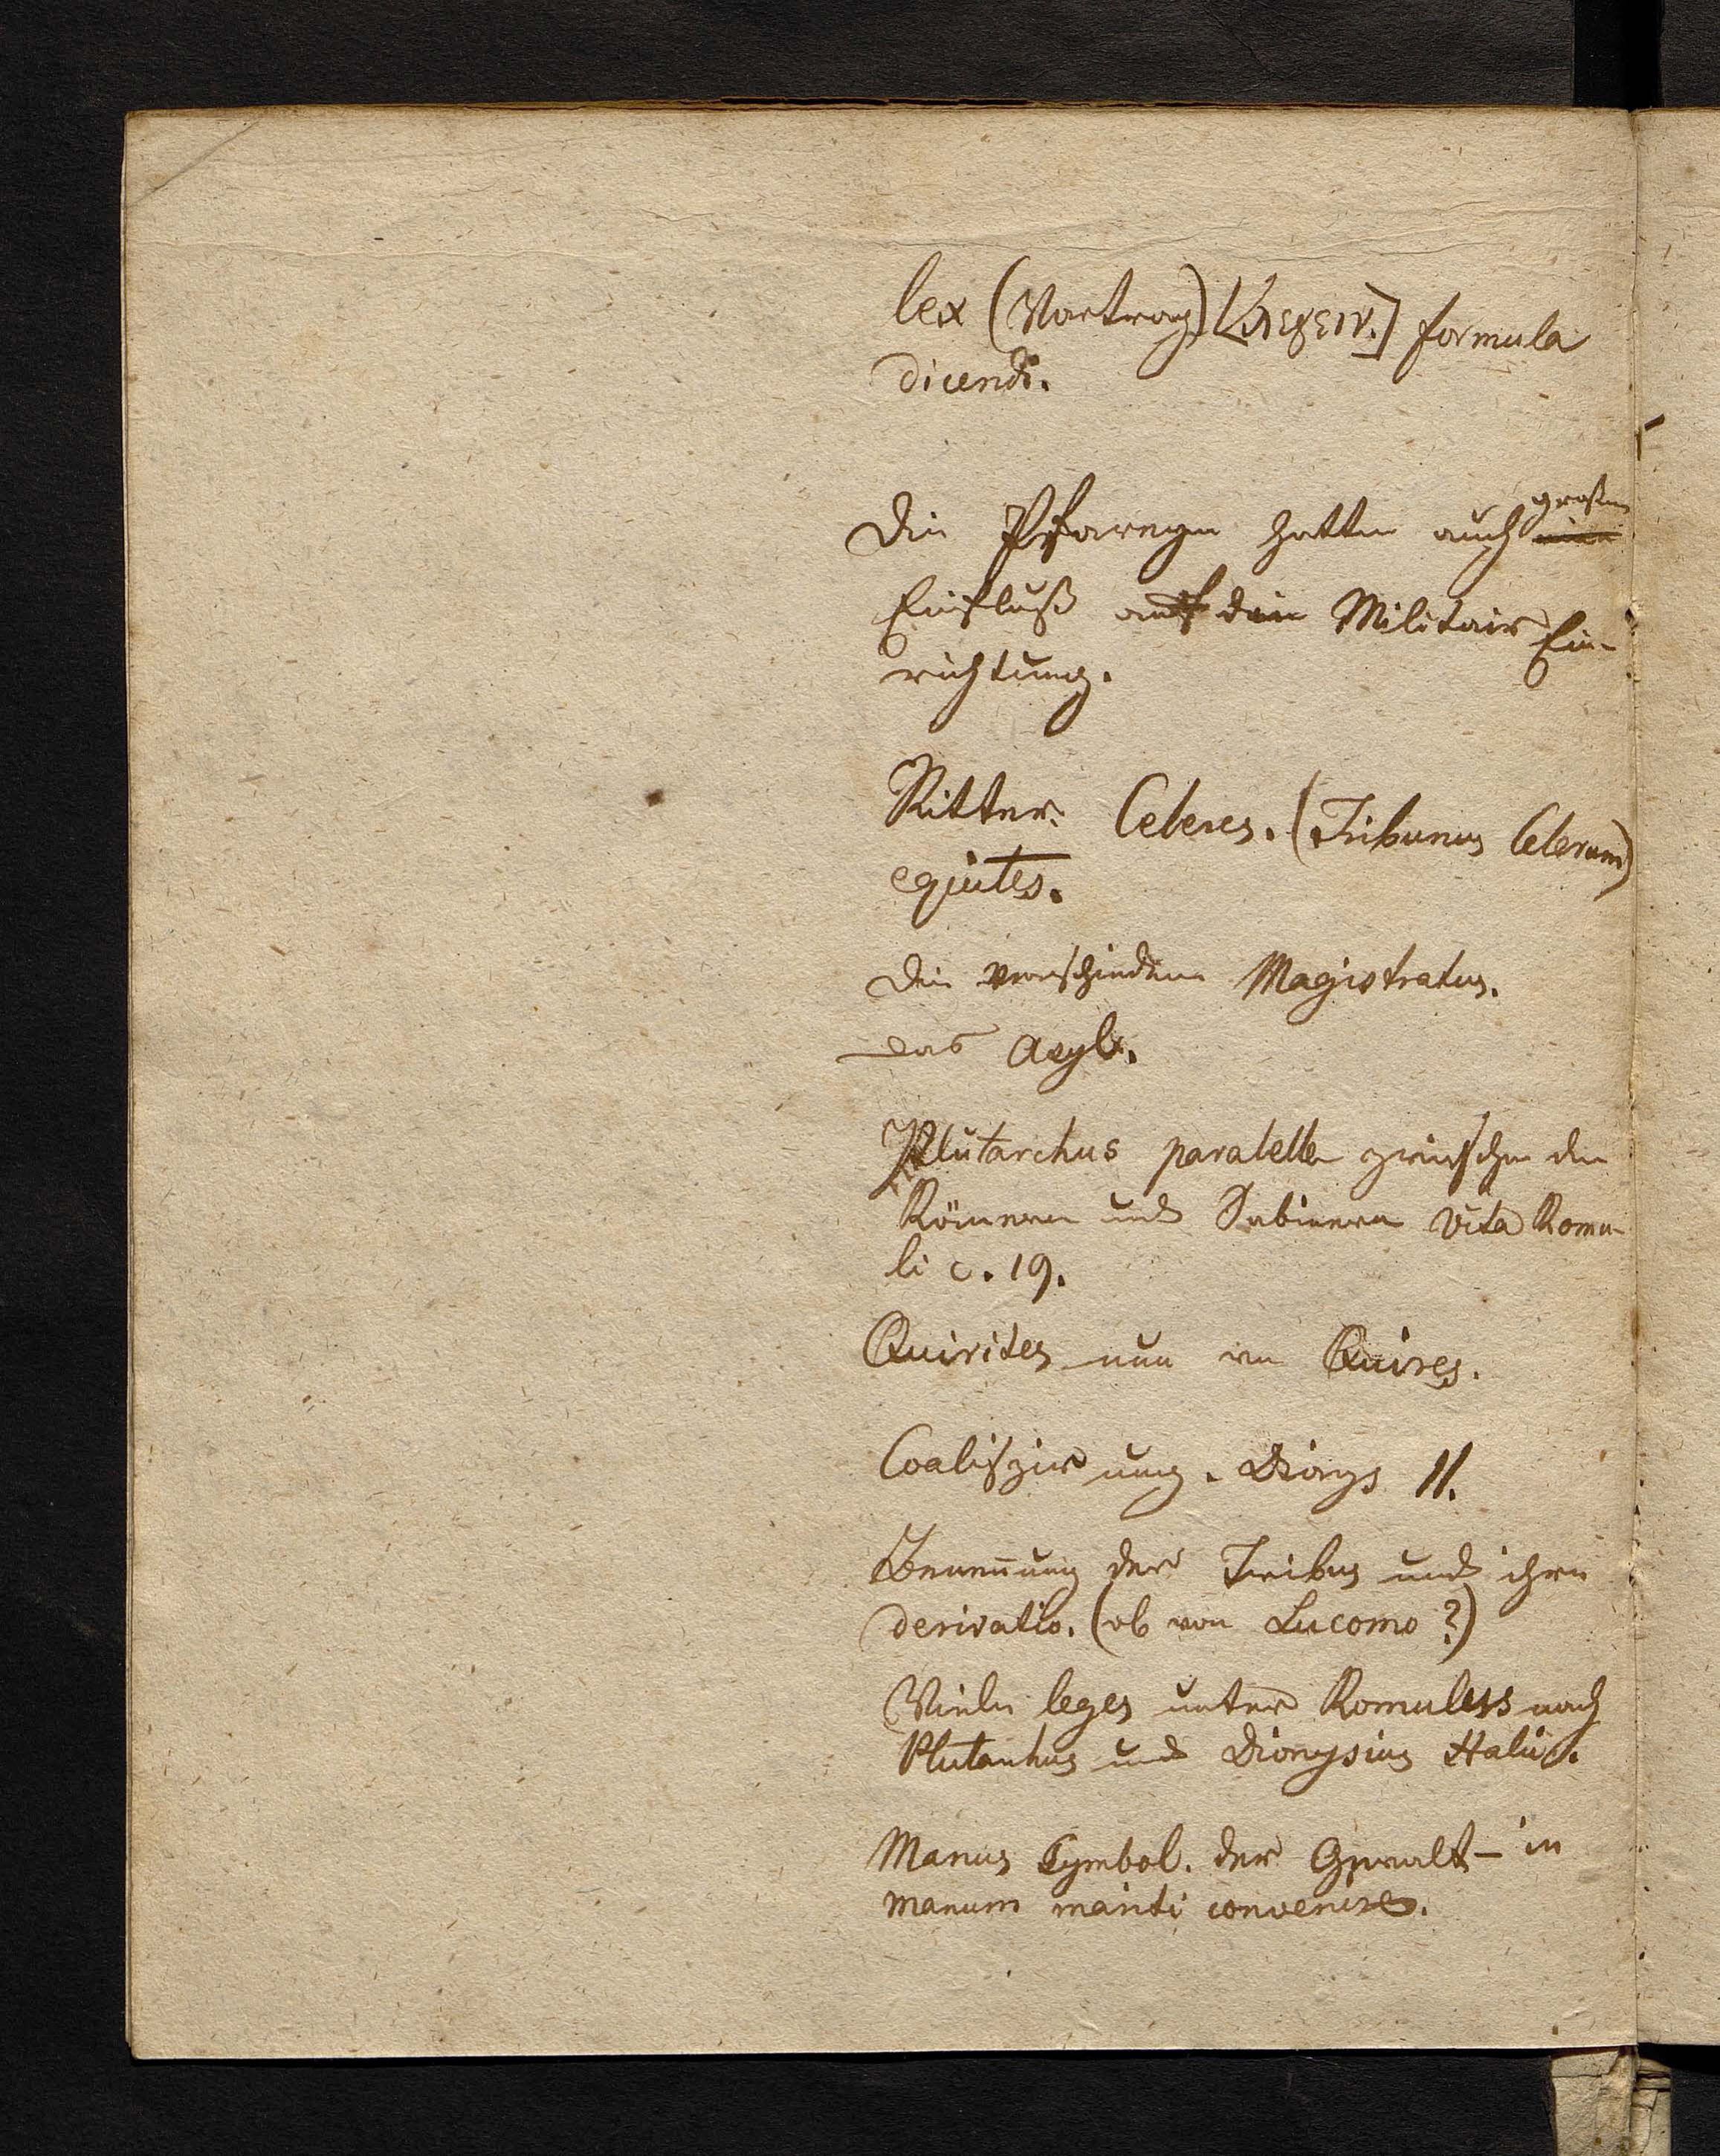 lex (Vortrag) [λεγειν.] formula
dicendi.
Die Pfarreyen hatten auch großen
Einfluß auf die Militair Ein-
richtung.
Ritter. Celeres. (Tribunus Celerum)
equites.
Die verschiedenen Magistratus.
das Asyl.
Plutarchus parallele zwischen den
Römern und Sabinern vita Romu-
li c. 19.
Quirites nun von Quires.
Coalisirung. Dionys II.
Benennung der Tribus und ihre
derivatio. (ob von Lucomo?)
Viele leges unter Romulus nach
Plutarchus und Dionysius Halic.
Manus Symbol. der Gewalt - in
manum mariti convenire.